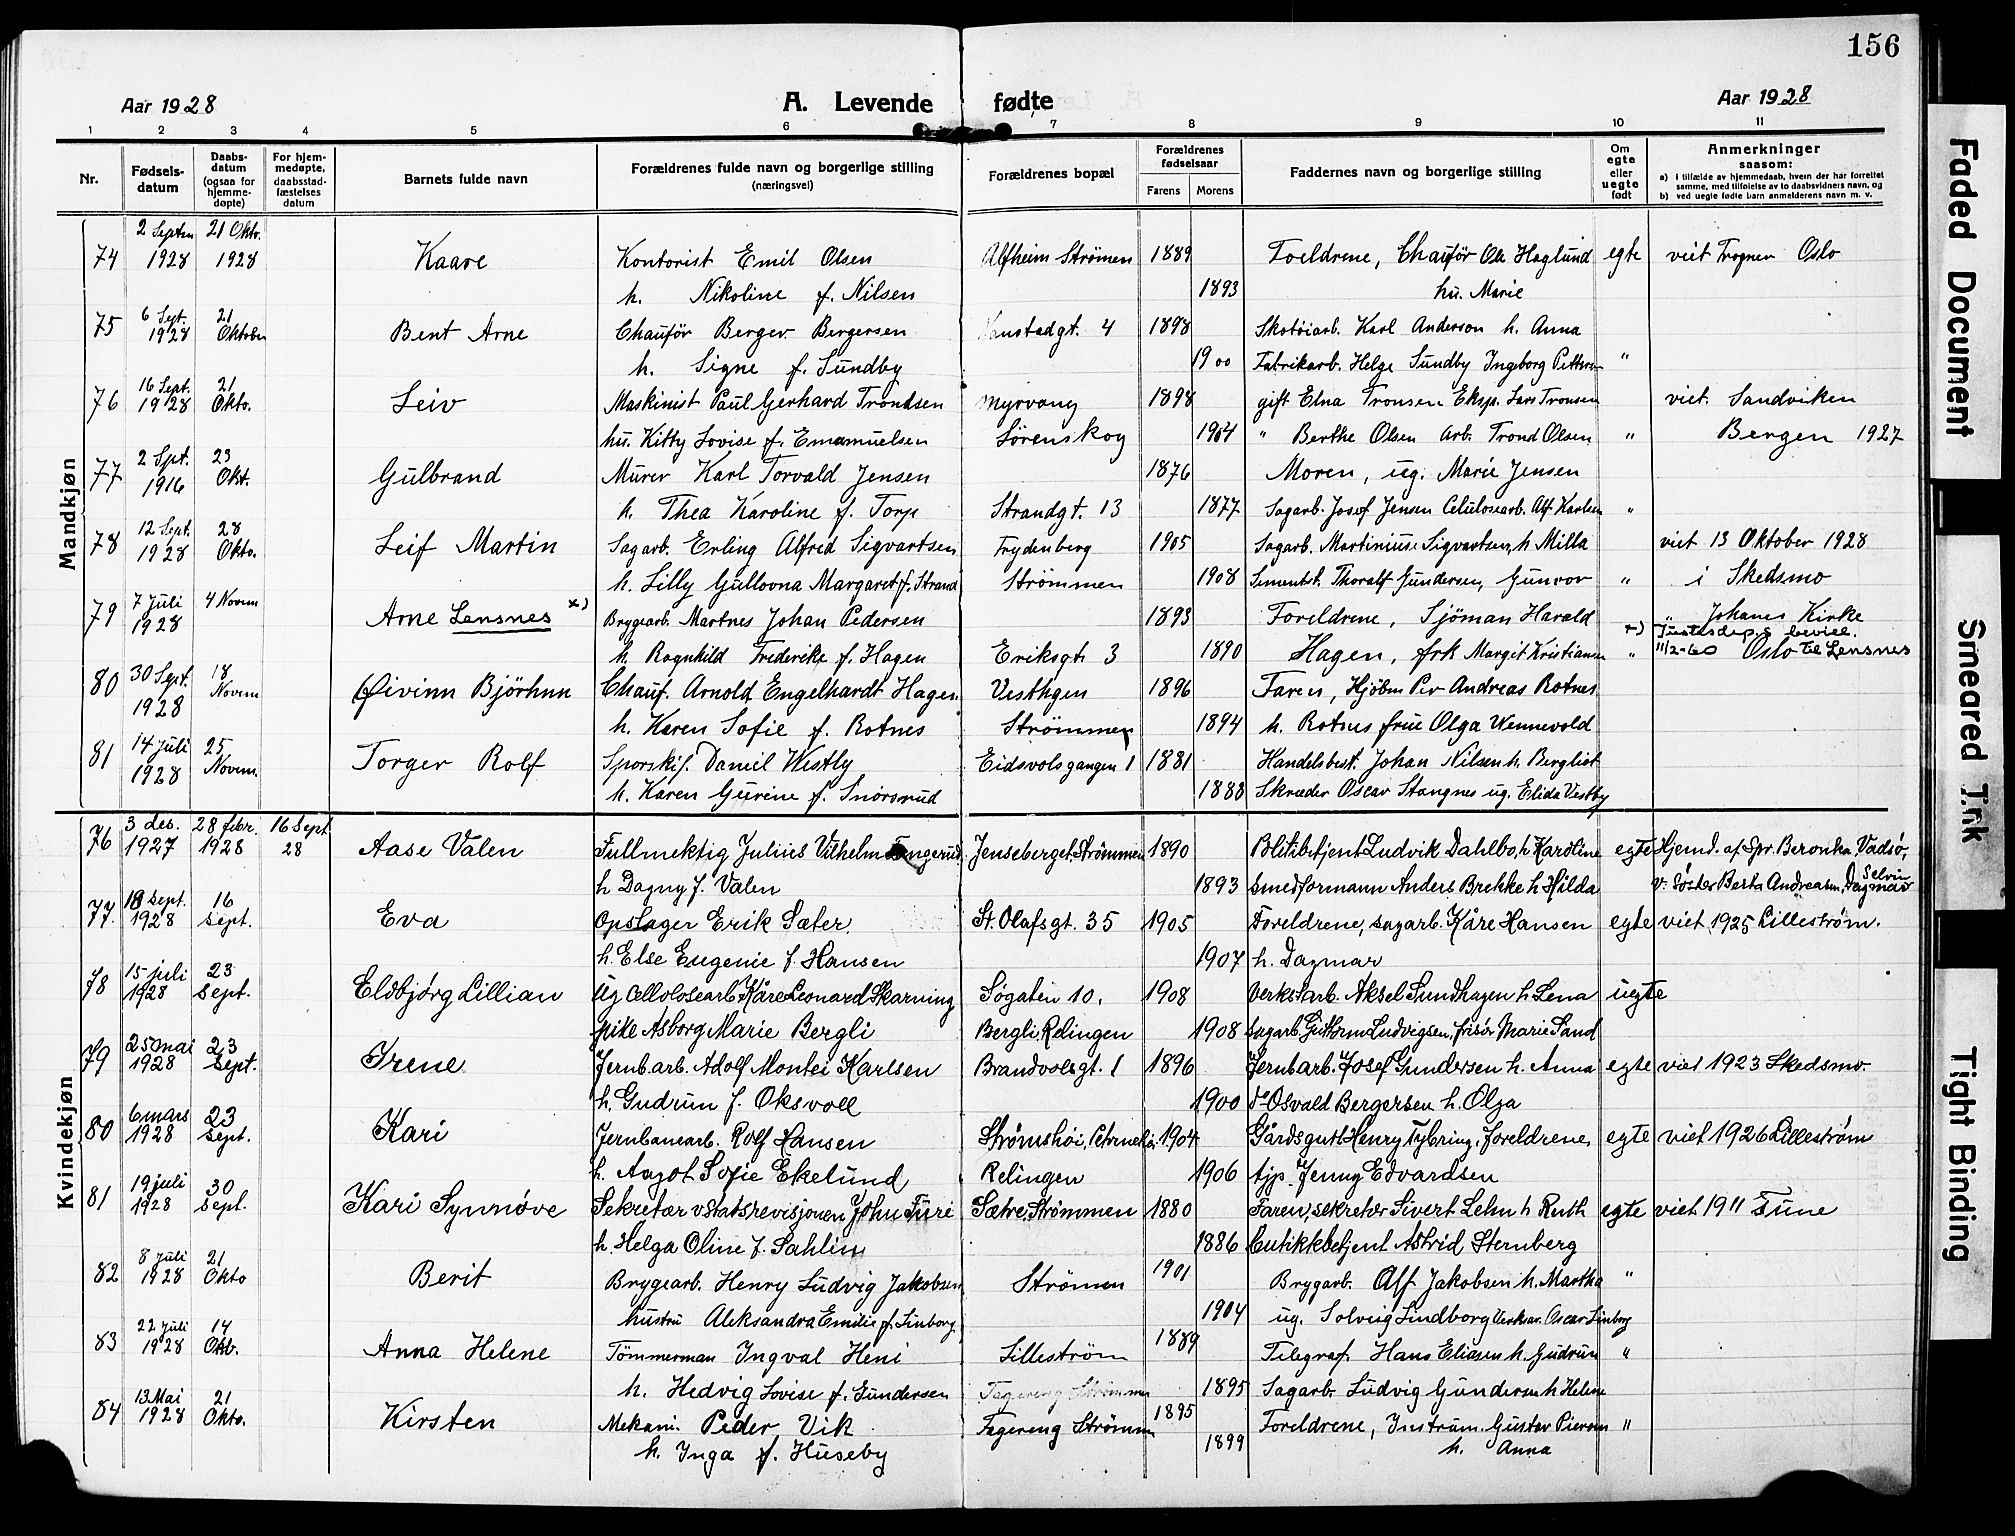 156
Aar 1928 A. Levende fødte Aar 1928
1 2 3 4 5 6 7 8 9 10 11
Nr. Fødsels-datum Daabs-datum (ogsaa for hjemme-døpte) For hjem-medøpte, daabsstad-fæstelses datum Barnets fulde navn Forældrenes fulde navn og borgerlige stilling (næringsvei) Forældrenes bopæl Forældrenes fødselsaar Farens Morens Faddernes navn og borgerlige stilling Om egte eller uegte født Anmerkninger saasom: a) i tilfælde av hjemmedaab, hvem der har forrettet samme, med tilføielse av to daabsvidners navn, og b) ved uegte fødte barn anmelderens navn m. v.
Mandkjøn
2 Septem 21 Okto.
74 1928 1928 Kaare Kontorist Emil Olsen Alfheim Strømen 1889 Foeldrene, Chaufør Ole Haglund egte viet Trogner Oslo
h. Nikoline f. Nilsen 1893 hu. Marie
75 6 Sept. 1928 21 Oktober Bent Arne Chauför Berger Bergersen gt. 4 1898 Skotøiarb. Karl Anderson h. Anna
h. Signe f. Sundby 1900 Fabrikarb. Helge Sundby Ingeborg Pettersen "
76 16 Sept. 1928 21 Okto. Leiv Maskinist Paul Gerhard Trondsen Myrvang 1898 gift Elna Tronsen Eksp. Lars Tronsen viet. Sandviken
hu. Kitty Lovise f. Emamuelsen Sørenskog 1904 " Berthe Olsen arb. Trond Olsen " Bergen 1927
77 2 Spt. 1916 23 Okt. Gulbrand Murer Karl Torvald Jensen 1876 Moren, ug. Marie Jensen
h. Thea Karoline f. Torp Strandgt. 13 1877 Sagarb. Josef Jensen Celulosearb. Alf Karlsen "
78 12 Sept. 1928 28 Okto. Leif Martin Sagarb. Erling Alfred Sigvartsen Frydenberg 1905 Sagarb. Martiniuse Sigvartsen, h Milla viet 13 Oktober 1928
h. Lilly Gullovna Margaret f. Strand Strömmen 1908 Sementst. Thoralf Gundersen, Gunvor " i Skedsmo
79 7 Juli 1928 4 Novem Arne Lensnes x) Brygearb. Martnes Johan Pedersen 1893 Foreldrene, Sjöman Harald " Johanes Kirke
x) Justisdep.s bevill.
h. Ragnhild Frederike f. Hagen Eriksgt. 3 1890 Hagen, frk Margit Kristiansen " 11/2-60 Oslo til Lensnes
80 30 Sept. 1928 18 Novem Øivinn Björhnn Chauf. Arnold Engelhardt Hagen. Vesthgen 1896 Faren, Hjøbm Per Andreas Rotnes
h. Karen Sofie f. Rotnes Strömmen 1894 h. Rotnes frue Olga Wennevold
81 14 Juli 1928 25 Novem. Torger Rolf Sporskif. Daniel Westby Eidsvolsgangen 1 1881 Handelsbest. Johan Nilsen h. Bergliot
h. Karen Gurine f. Snörsrud 1888 Skræder Oscar Stangnes ug. Elida Vestby
Kvindekjøn
76 3 des. 1927 28 febr. 1928 16 Sept 28 Aase Valen Fullmektig Julius Vilhelm Tangerud Jenseberget Strømmen 1890 Blitibetjent Ludvik Dahlbo, h Karoline egte Hjemd. af Spr. Beronka, Vadsø,
h Dagny f. Valen 1893 Smedformann Anders Brekke h Hilda v. Søster Berta Andreasen, Dagmar Selvin
77. 18 Sept. 1928 16 Sept. Eva Opslager Erik Sæter. St. Olafsgt. 35 1905 Foreldrene, sagarb. Kåre Hansen egte viet 1925 Lillestrøm.
h. Else Eugenie f. Hansen 1907 h. Dagmar
78 15 juli 1928 23 Sept. Eldbjørg Lillian Ug cellolosearb Kåre Leonard Skarning Søgaten 10. 1908 Verkstarb. Aksel Sundhagen h Lena uegte
pike Asborg Marie Bergli Bergli Relingen 1908 sagarb. Guthorm Ludvigsen, frisør Marie Sand
79 25 mai 1928 23 Sept. Irene. Jernb.arb. Adolf Montei Karlsen Brandvolsgt. 1 1896 Jernbarb. Josef Gundersen h. Anna egte viet 1923 Skedsmo.
h. Gudrun f. Oksvoll 1900 do Osvald Bergersen h. Olga
80 6 mars 1928 23 Sept. Kari Jernbanearb. Rolf Hansen Strømshøi, 1904 Gårdsgutt Henry Tybring, foreldrene, egte viet 1926 Lillestrøm
h. Aagot Sofie Ekelund Relingen 1906 tjp. Jenny Edvardsen
81 19 juli 1928 30 Sept. Kari Synnøve Sekretær v Statsrevisjonen John Furi Sætre, Strømmen 1880 Faren, sekretær Sivert Lehn h Ruth egte viet 1911 Tune
h. Helga Oline f. Sahlin 1886 Butikkbetjent Astrid Sternberg
82 8 Juli 1928 21 Okto Berit Brygearb. Henry Ludvig Jakobsen Strömen 1901 Brygarb. Alf Jakobsen h. Martha "
hustru Aleksandra Emilie f. Linborg 1904 ug. Solveig Lindborg Verksar. Oscar Linborg
83 22 Juli 1928 14 Okt. Anna Helene Tömmerman Ingval Heni Lilleström 1889 Telegraf. Hans Eliasen h. Gudrun "
h. Hedvig Lovise f. Gundersen Fagereng Strömmen 1895 Sagarb. Ludvig Gundersen h Helene
84 13 Mai 1928 21 Okto. Kirsten Mekani. Peder Vik Fagereng Strömmen 1895 Foreldrene, Instrum. Gustav Piersen "
h. Inga f. Huseby 1899 h. Anna
Faded Document
Smeared Ink
Tight Binding